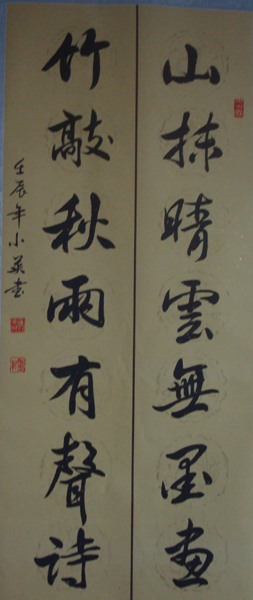 山抹晴雲無墨畫
竹敲秋雨有聲詩
壬辰年小英書